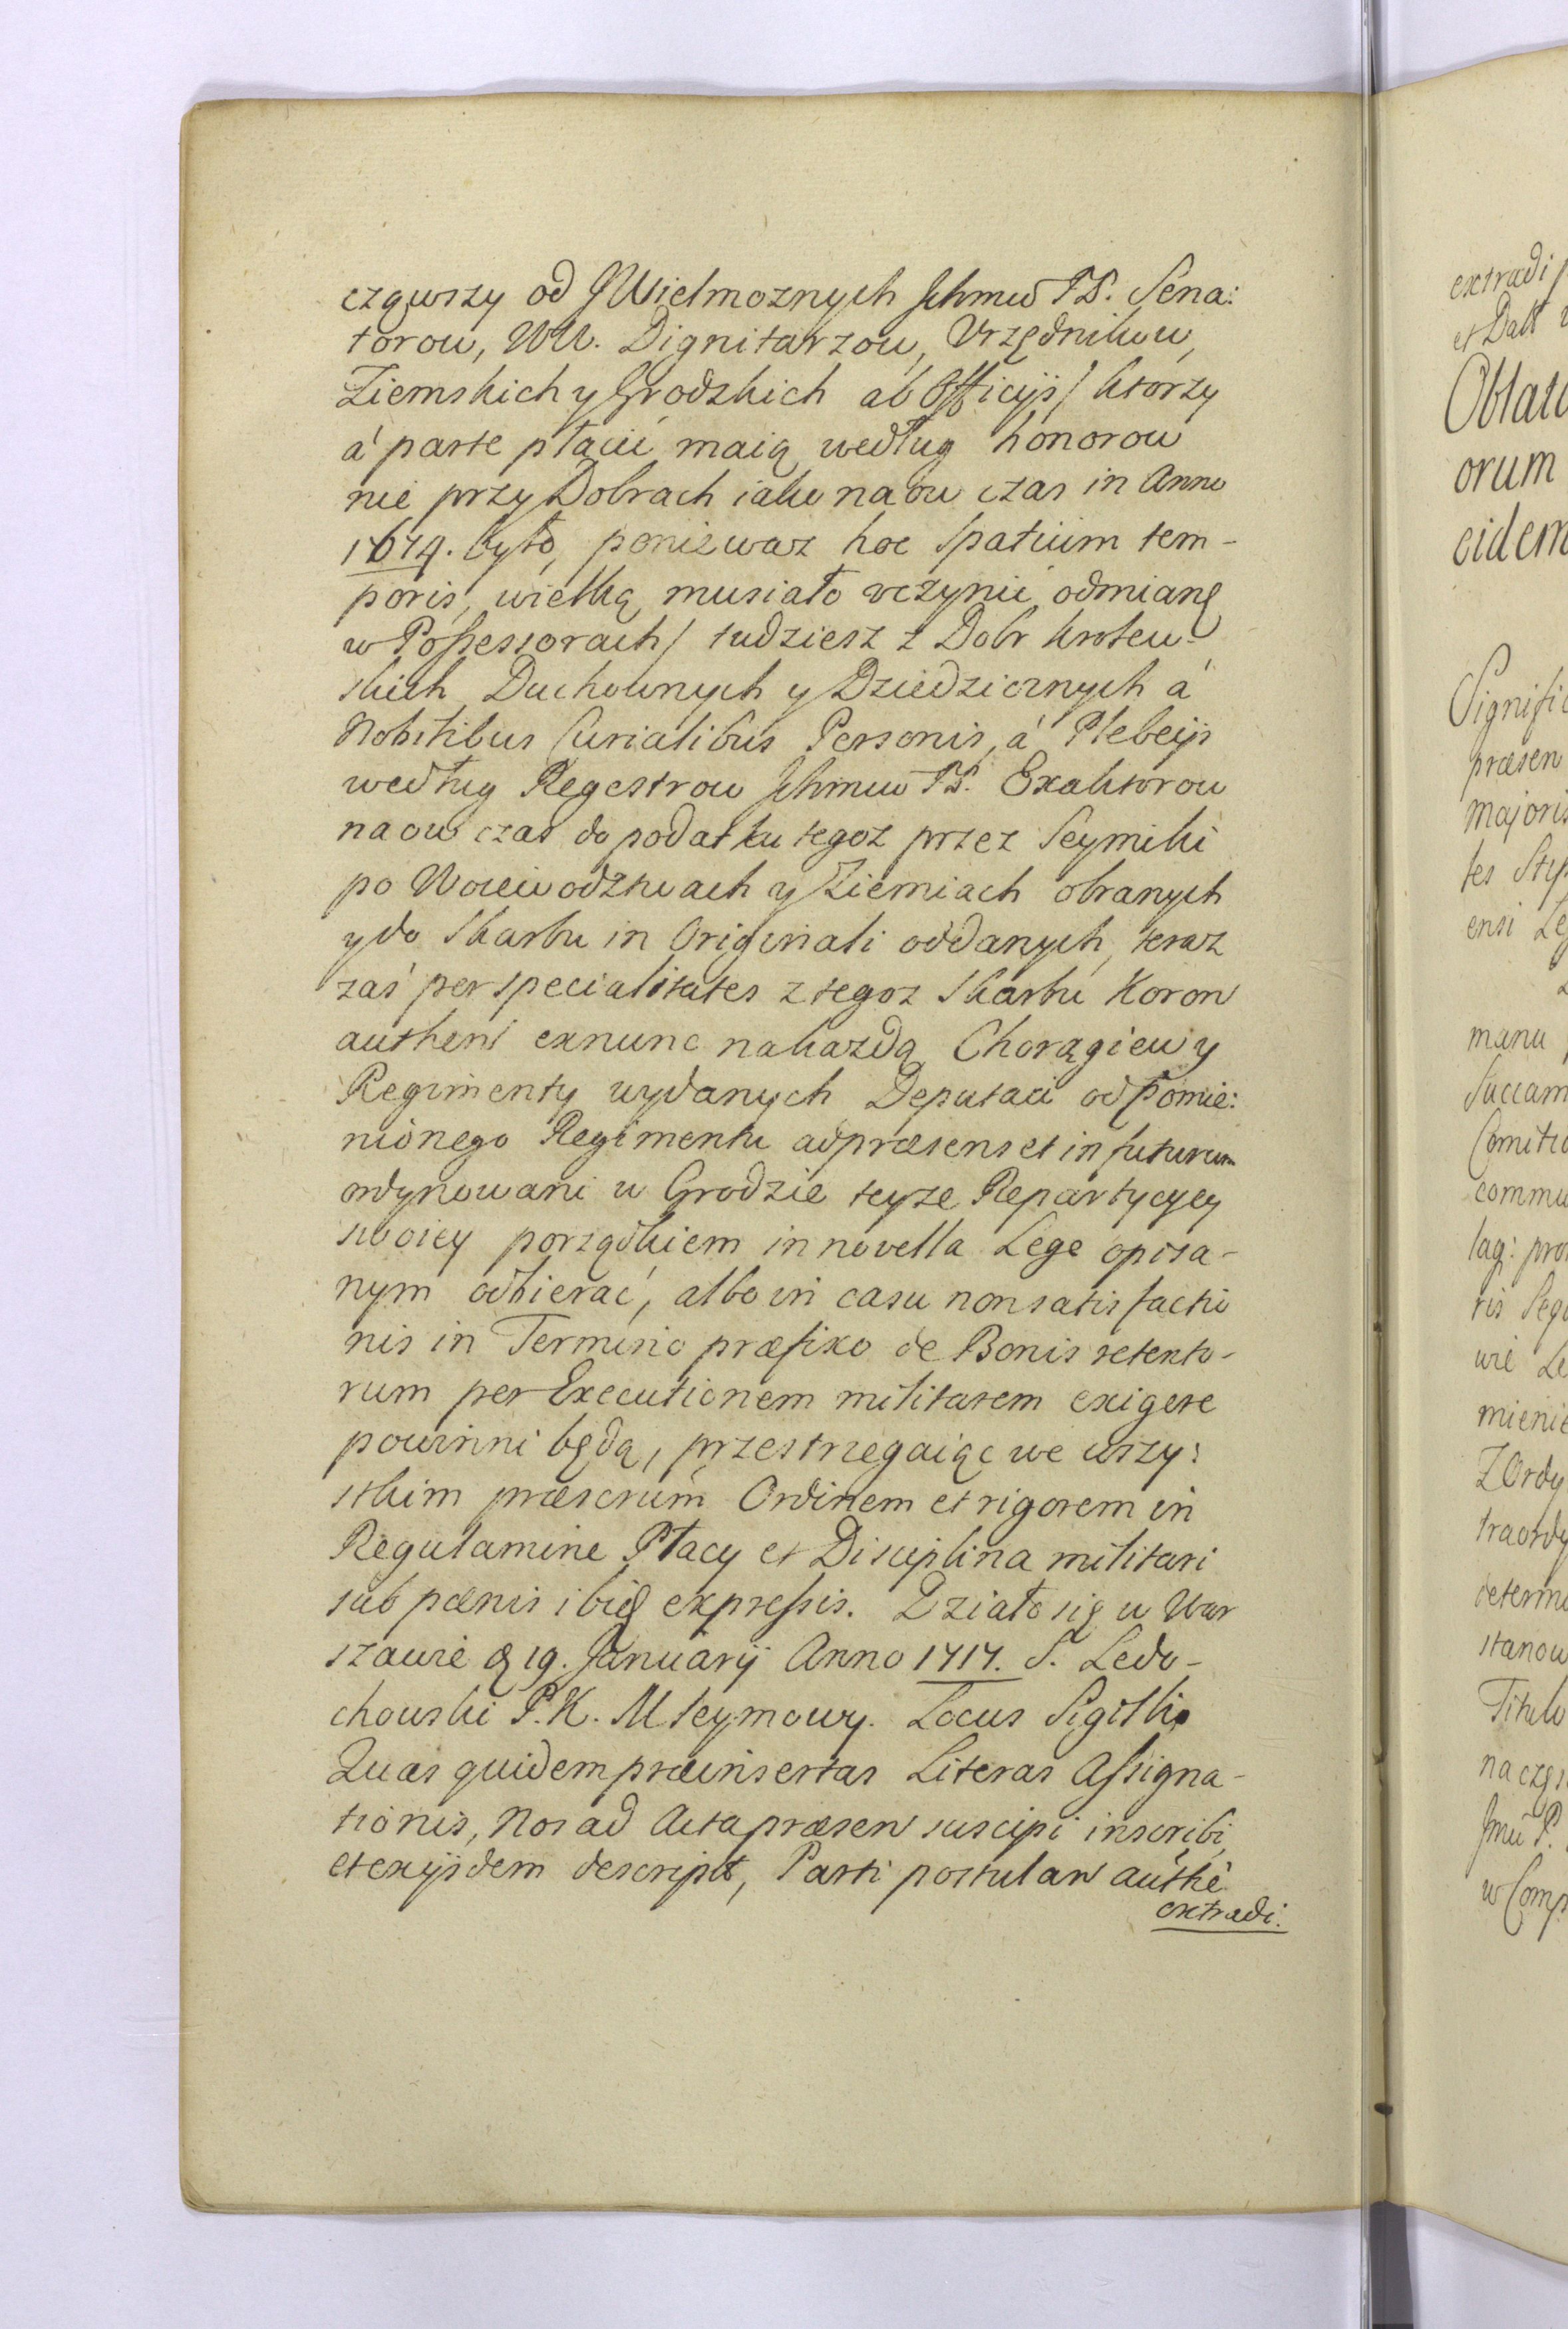 cząwszy od JWielmoznych Ichmw PP. Sena:
torow, WW. Dignitarzow, Vrzędnikow,
Ziemskich y Grodzkich ab Officijs/ ktorzy
á parte płacić maią według honorow
nie przy Dobrach iako na ow czas in Anno
1674. było, poniewasz hoc Spatium tem-
poris, wielką musiało vczynić odmianę
w Possessorach/ tudziesz z Dobr Krolew-
skich Duchownych y Dziedzicznych á
Nobilibus Curialibus Personis, á Plebeijs
według Regestrow Ichmw PP. Exaktorow
na ow czas do podatku tegoz przez Seymiki
po Woiewodztwach y Ziemiach obranych
y do Skarbu in Originali oddanych, teraz
zaś per specialitates z tegoz Skarbu Koron
authen exnunc na kazdą Chorągiew y
Regimenty wydanych Deputaci od pomie:
nionego Regimentu ad præsens et in futurum
ordynowani w Grodzie teyze Repartycyey
swoiey porządkiem in novella Lege opisa-
nym odbierać, albo in casu non satisfactio
nis in Termino præfixo de Bonis retento-
rum per Executionem militarem exigere
powinni będą, przestrzegaiąc we wszy:
stkim præscrium Ordinem et rigorem in
Regulamine Płacy et Disciplina militari
sub pænis ibid expressis. Działo się w War
szawie d 19. Januarij Anno 1717. S. Ledo-
chowski P.K. M Seymowy. Locus Sigilli.
Quas quidem præinsertas Literas Assigna-
tionis, Nos ad Acta præsen suscipi inscribi,
et ex ijsdem descript, Parti postulan authe
extradi.
extradi
et Datt
Oblat
orum
eidem
Signific
præsen
majoris
tes Stip
ensi Le
manu
Succam
Comitio
commu
lag: pro
ris Segu
wie Le
mienie
ZOrdy
traordy
determ
stanow
Titulo
na częs
Jmci P.
w Comp